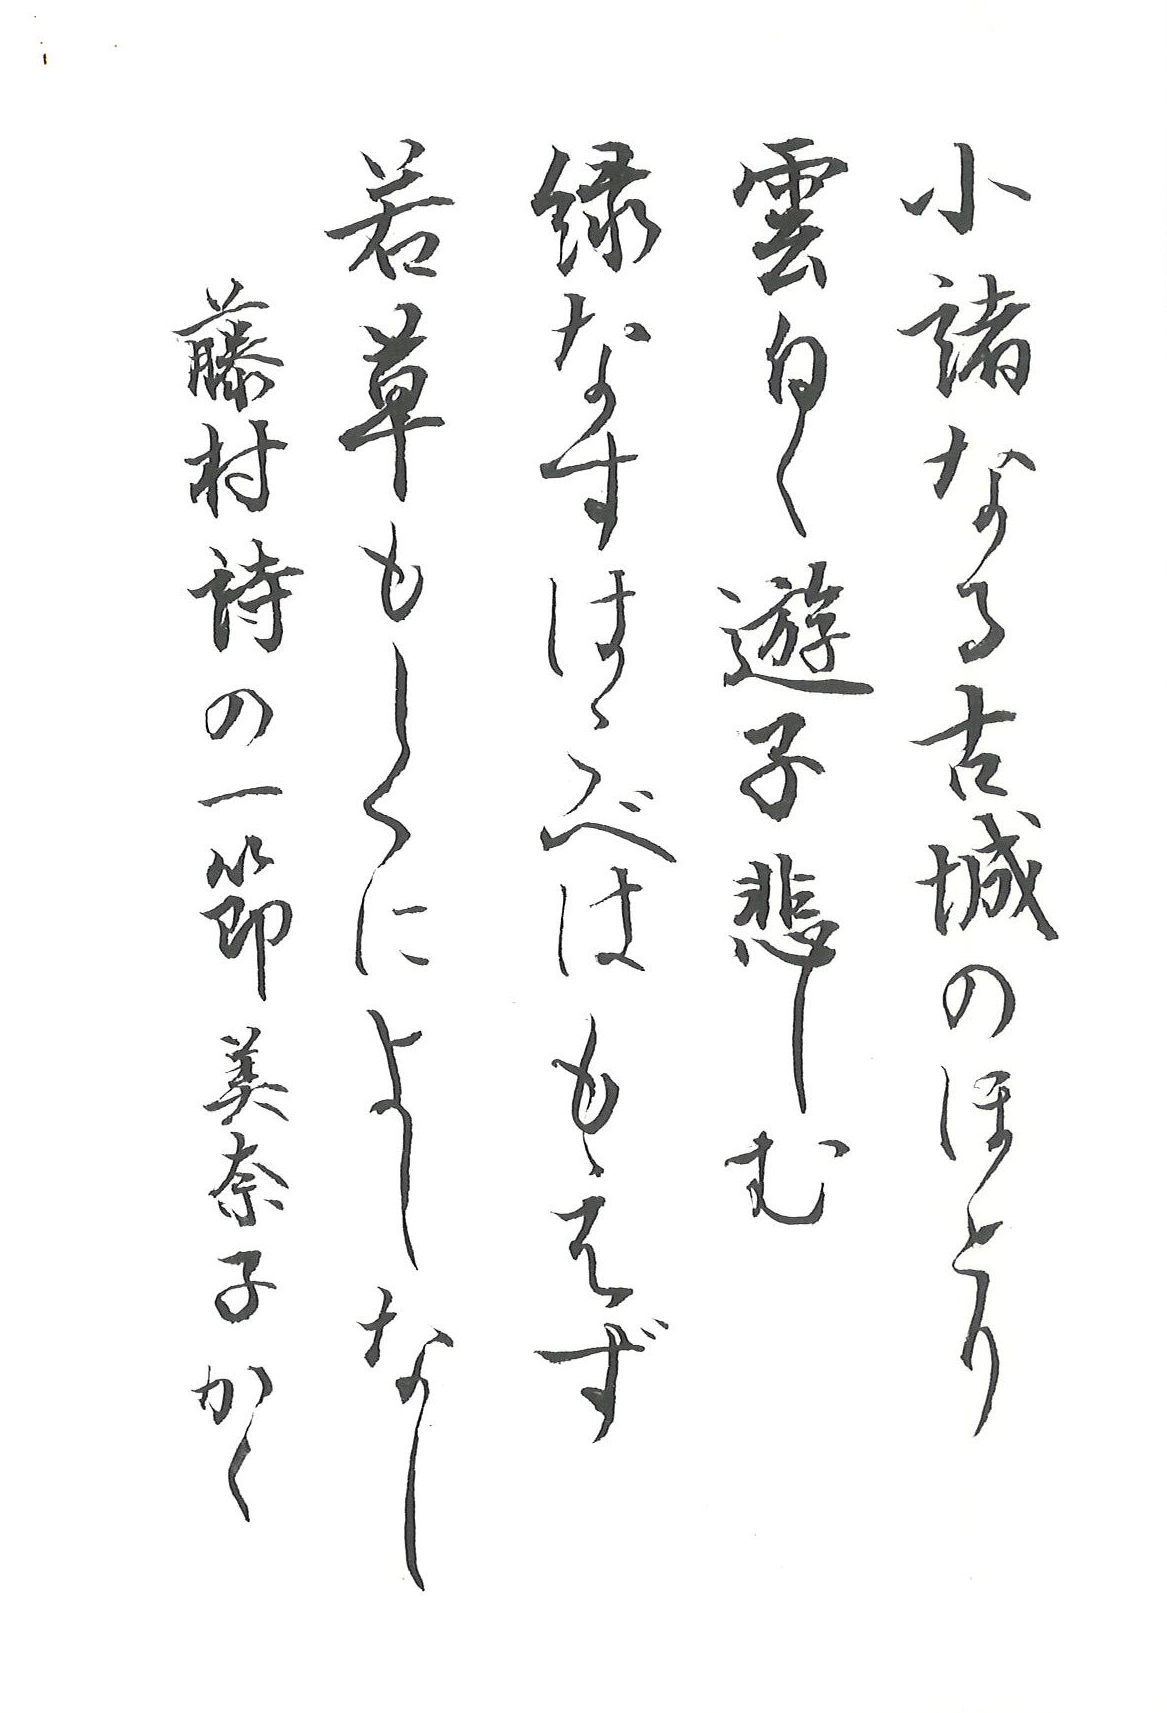 小諸なる古城のほとり
雲白く遊子悲しむ
緑なすはこべはもえず
若草もしくによしなし
藤村詩の一節 美奈子かく